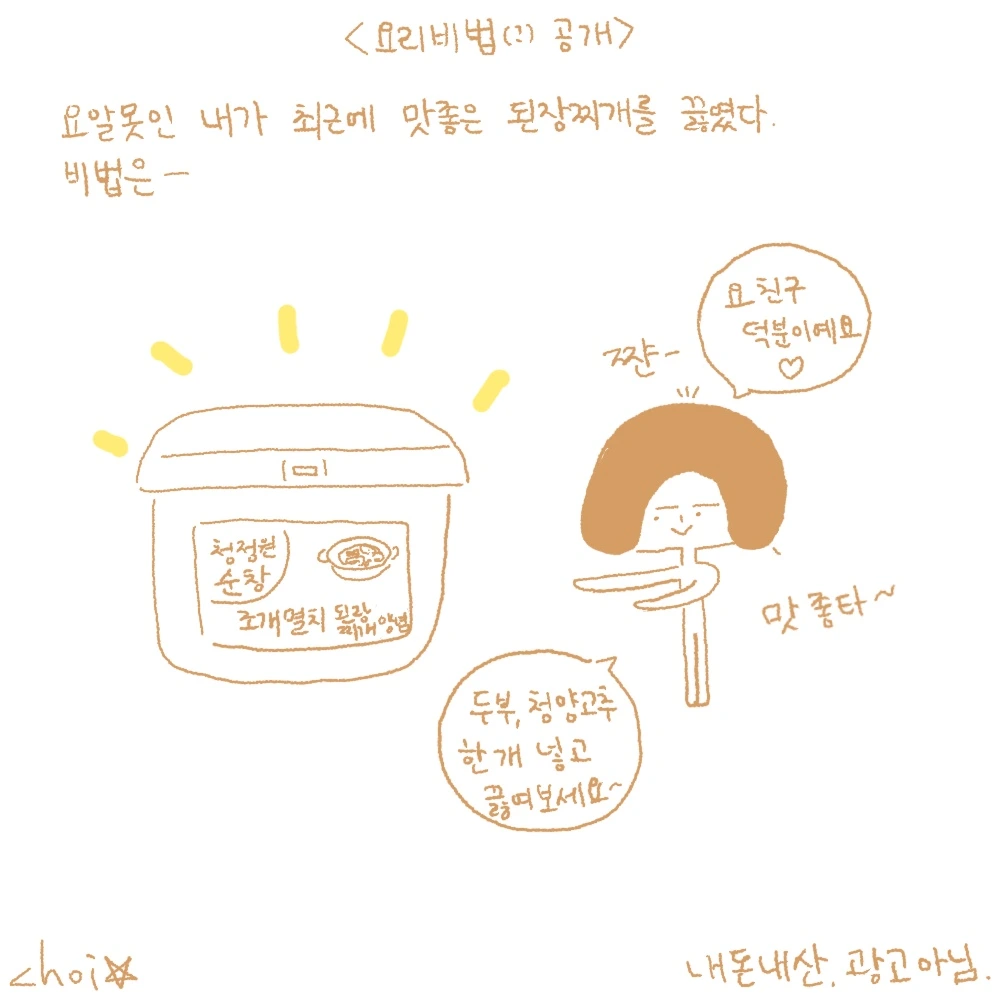 <요리비법(?) 공개>
요알못인 내가 최근에 맛좋은 된장찌개를 끓였다.
비법은-
요 친구
덕분이예요
♡
짠-
청정원
순창
조개멸치 된장
찌개양념
맛 좋타~
두부, 청양고추
한 개 넣고
끓여보세요~
choi☆
내돈내산. 광고아님.